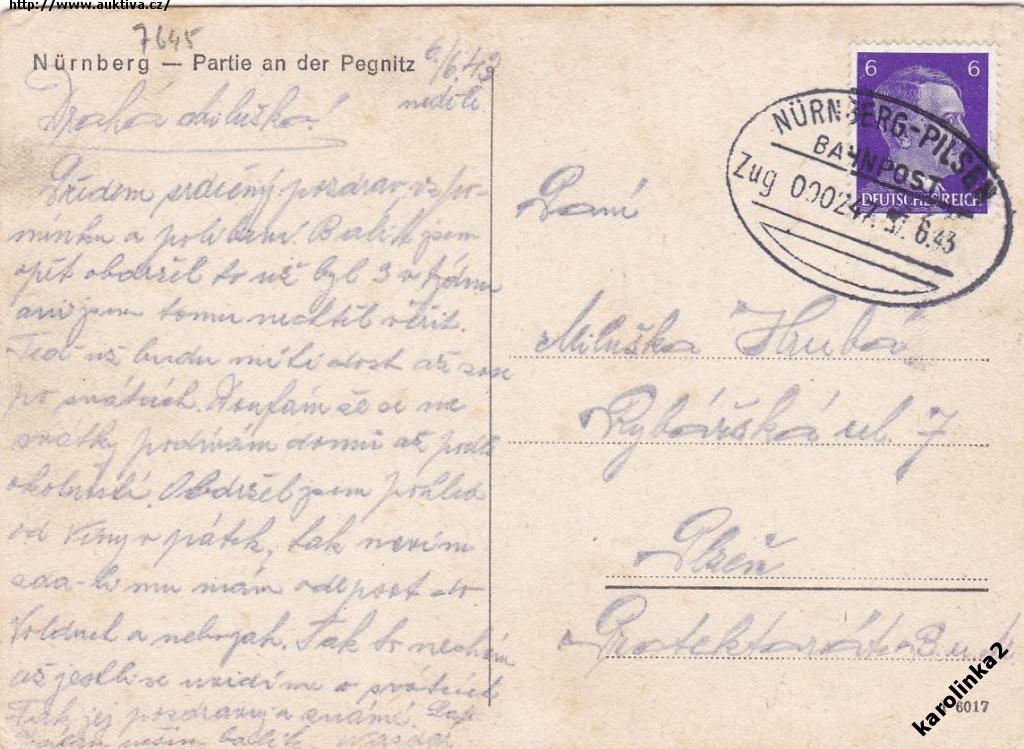 http://www.auktiva.cz/
7645
Nürnberg — Partie an der Pegnitz
6/6.43
neděle
Drahá Miluško!
srdečný pozdrav, vzpo-
mínku a políbení. Balík jsem
opět obdržel to už byl 3 v týdnu
ani jsem tomu nechtěl věřit.
Teď už budu míti dost až zase
po svátcích. Doufám že se na
svátky podívám domů až podle
okolností. Obdržel jsem pohled
od v pátek, tak nevím
zda-li mu mám odepsat do
a nebo jak. Tak to nechám
až jestli se uvidíme o svátcích
Tak jej pozdravuj a známé.
balík.
6 6
DEUTSCHES REICH
NÜRNBERG-PILSEN
BAHNPOST
Zug 000247 6.43
Paní
Miluška Hrubá
Rybářská ul. 7
Plzeň
Protektorát B.u.M.
6017
karolinka2